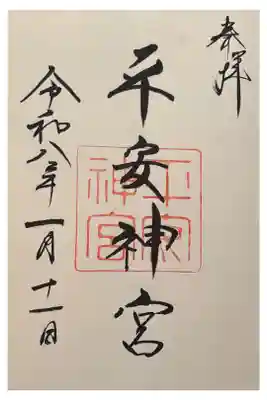 奉拝
平安神宮
平安神宮
令和八年一月十一日